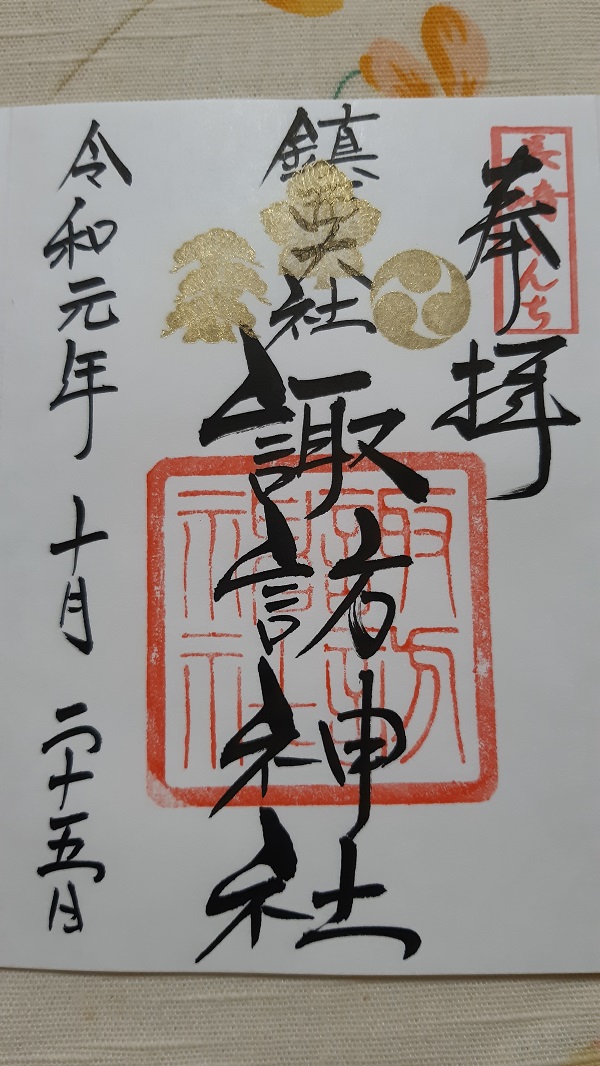 奉拝
鎮西大社
諏訪神社
諏訪神社
令和元年 十月 二十五日